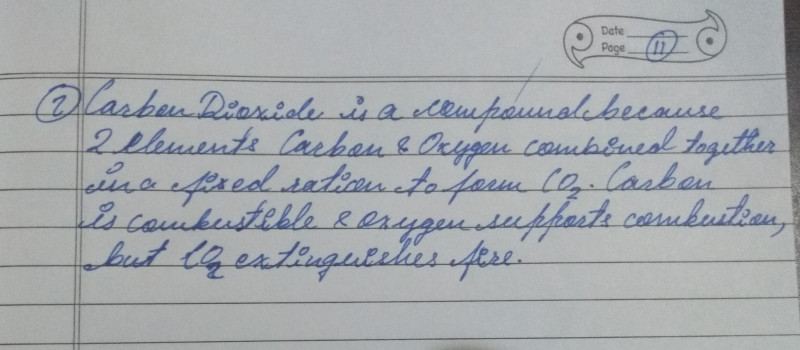 Date
Page 11
② Carbon Dioxide is a compound because
2 elements Carbon & Oxygen combined together
in a fixed ration to form CO₂. Carbon
is combustible & oxygen supports combustion,
but CO₂ extinguishes fire.